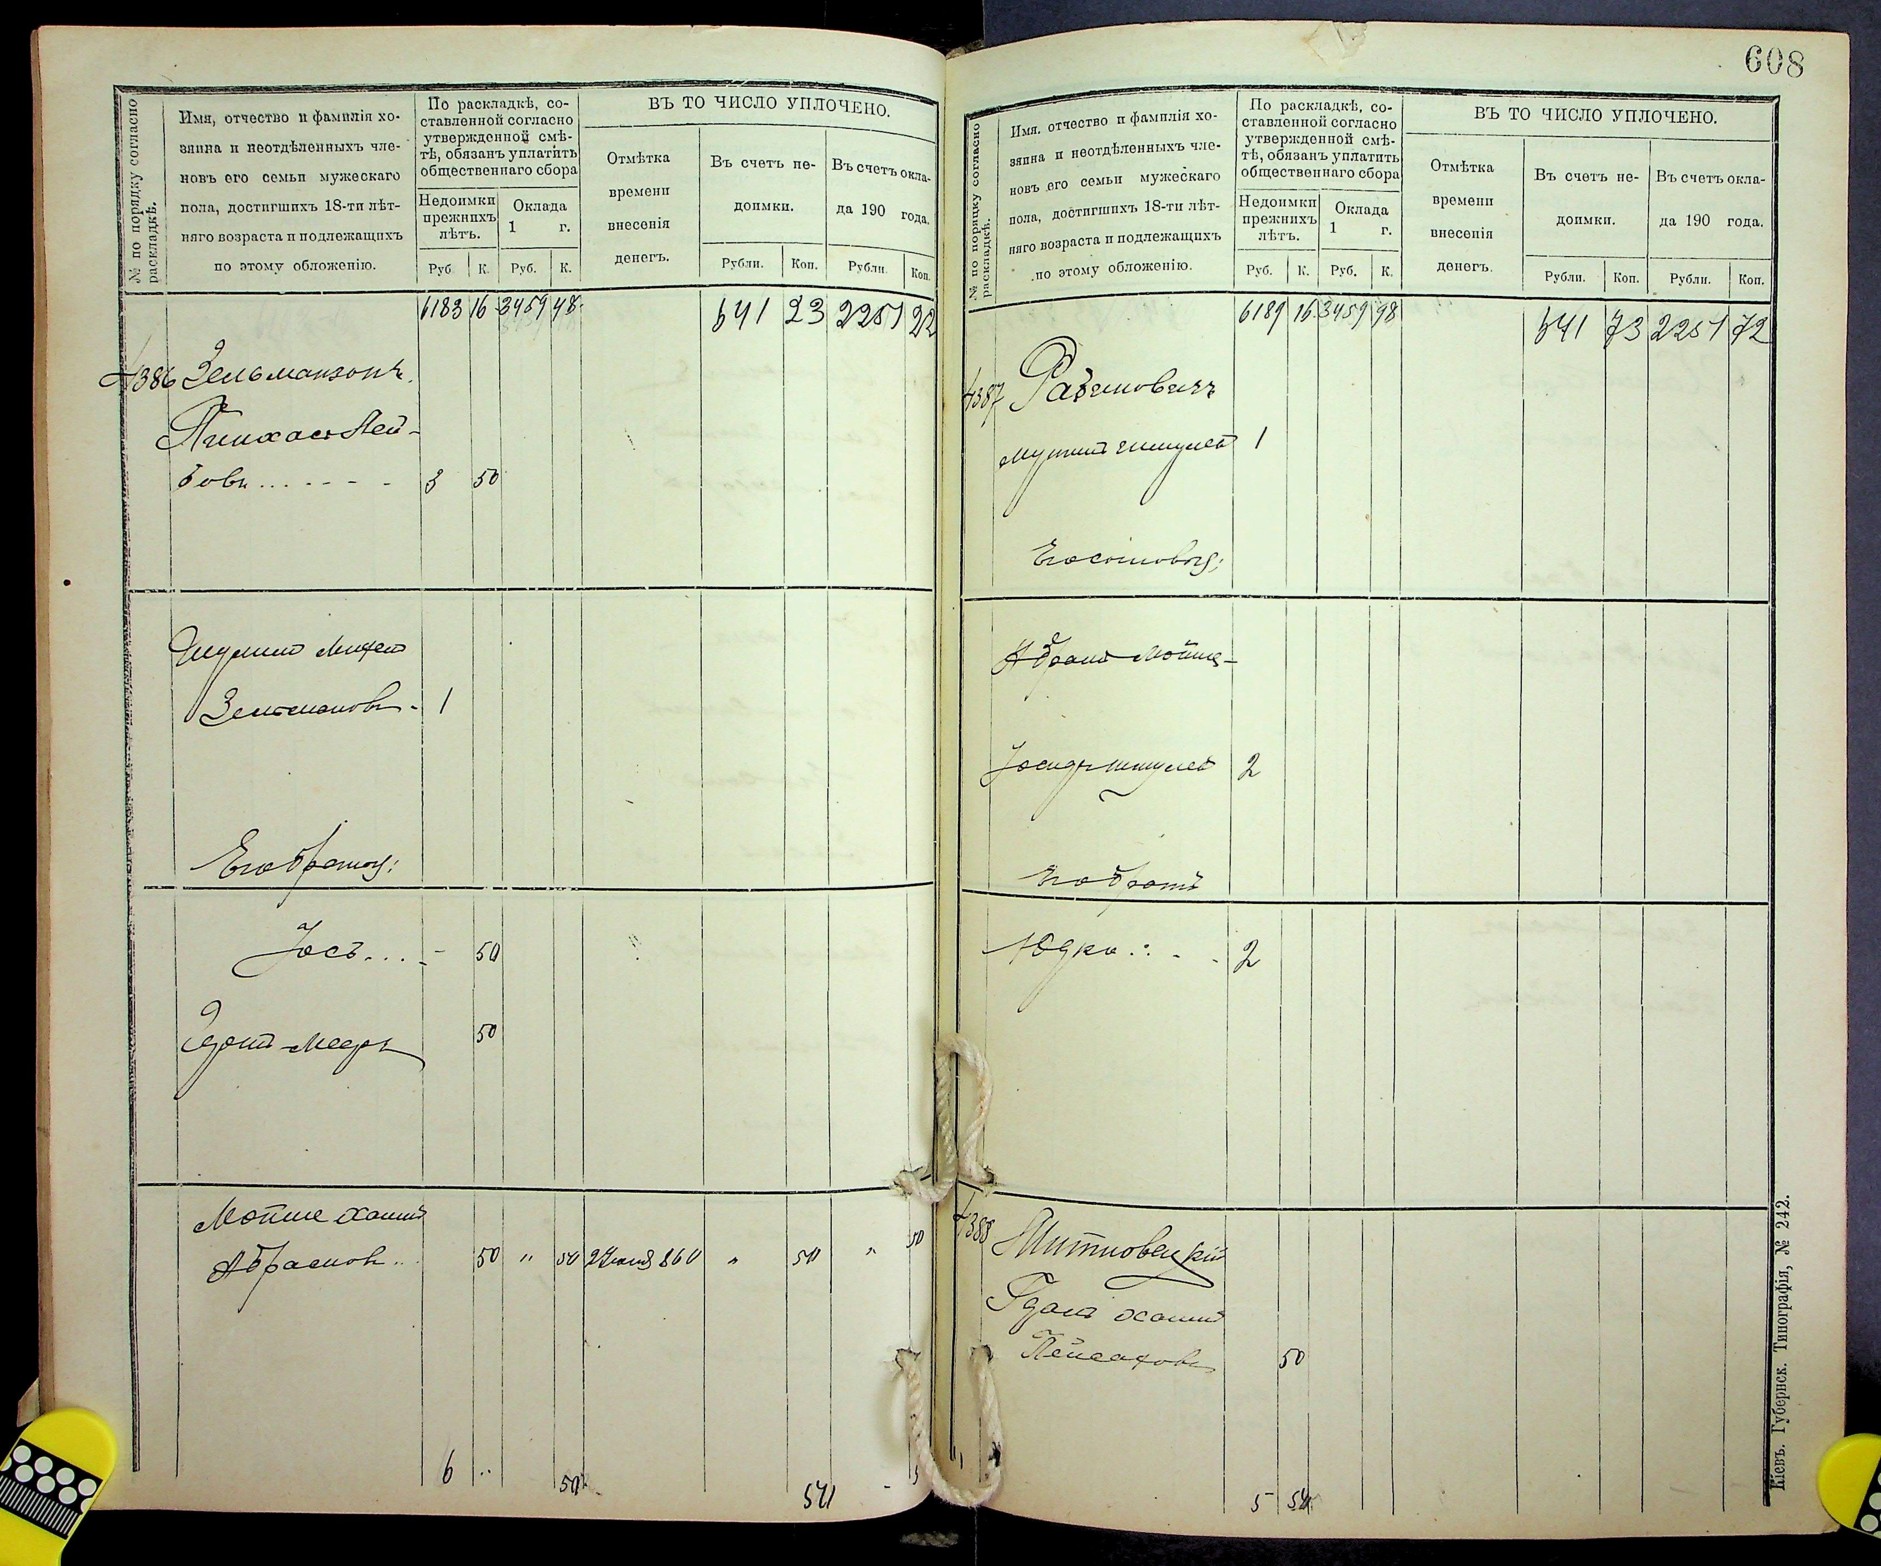 № по порядку согласно раскладкѣ.
Имя, отчество и фамилія хо-
зяина и неотдѣленныхъ чле-
новъ его семьи мужескаго
пола, достигшихъ 18-ти лѣт-
няго возраста и подлежащихъ
по этому обложенію.
По раскладкѣ, со-
ставленной согласно
утвержденной смѣ-
тѣ, обязанъ уплатить
общественнаго сбора
Недоимки
прежнихъ
лѣтъ.
Оклада
1 г.
Руб. К. Руб. К.
ВЪ ТО ЧИСЛО УПЛОЧЕНО.
Отмѣтка
времени
внесенія
денегъ.
Въ счетъ не-
доимки.
Рубли. Коп.
Въ счетъ окла-
да 190 года.
Рубли. Коп.
6183 16 3459 48 641 23 2251 22
4386 Зельманзонъ
Пинхасъ Лей-
бовъ 3 50
Шулимъ Михел
Зельмановъ 1
Его братья:
Іосъ 50
Мееръ 50
Мойше Хаимъ
Абрамовъ 50 " 50 " 50 " 50
6 " 50 50
608
№ по порядку согласно раскладкѣ.
Имя, отчество и фамилія хо-
зяина и неотдѣленныхъ чле-
новъ его семьи мужескаго
пола, достигшихъ 18-ти лѣт-
няго возраста и подлежащихъ
по этому обложенію.
По раскладкѣ, со-
ставленной согласно
утвержденной смѣ-
тѣ, обязанъ уплатить
общественнаго сбора
Недоимки
прежнихъ
лѣтъ.
Оклада
1 г.
Руб. К. Руб. К.
ВЪ ТО ЧИСЛО УПЛОЧЕНО.
Отмѣтка
времени
внесенія
денегъ.
Въ счетъ не-
доимки.
Рубли. Коп.
Въ счетъ окла-
да 190 года.
Рубли. Коп.
6189 16 3459 98 641 73 2251 72
4387 Рабиновичъ
1
Его сыновья:
Абрамъ Мойше-
2
Его братъ
Юдко 2
4388 Житновецкій
Хаимъ
Пейсаховъ 50
5 50
Кіевъ. Губернск. Типографія, № 242.